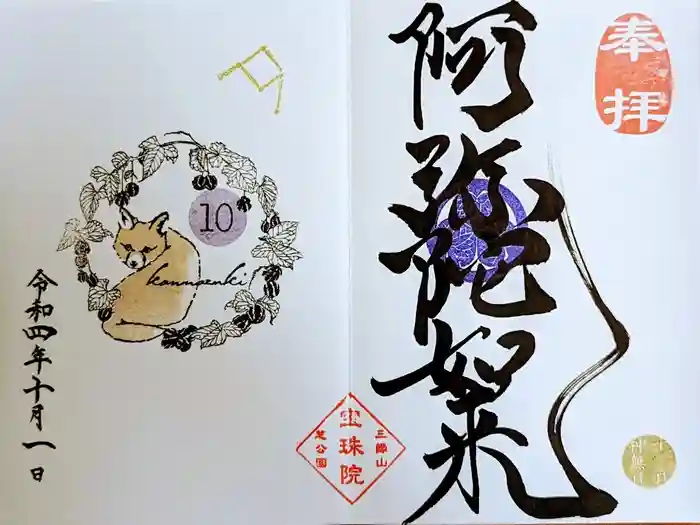 奉拝
阿弥陀如来
三縁山
宝珠院
芝公園
十月
10
kannazuki
令和四年十月一日